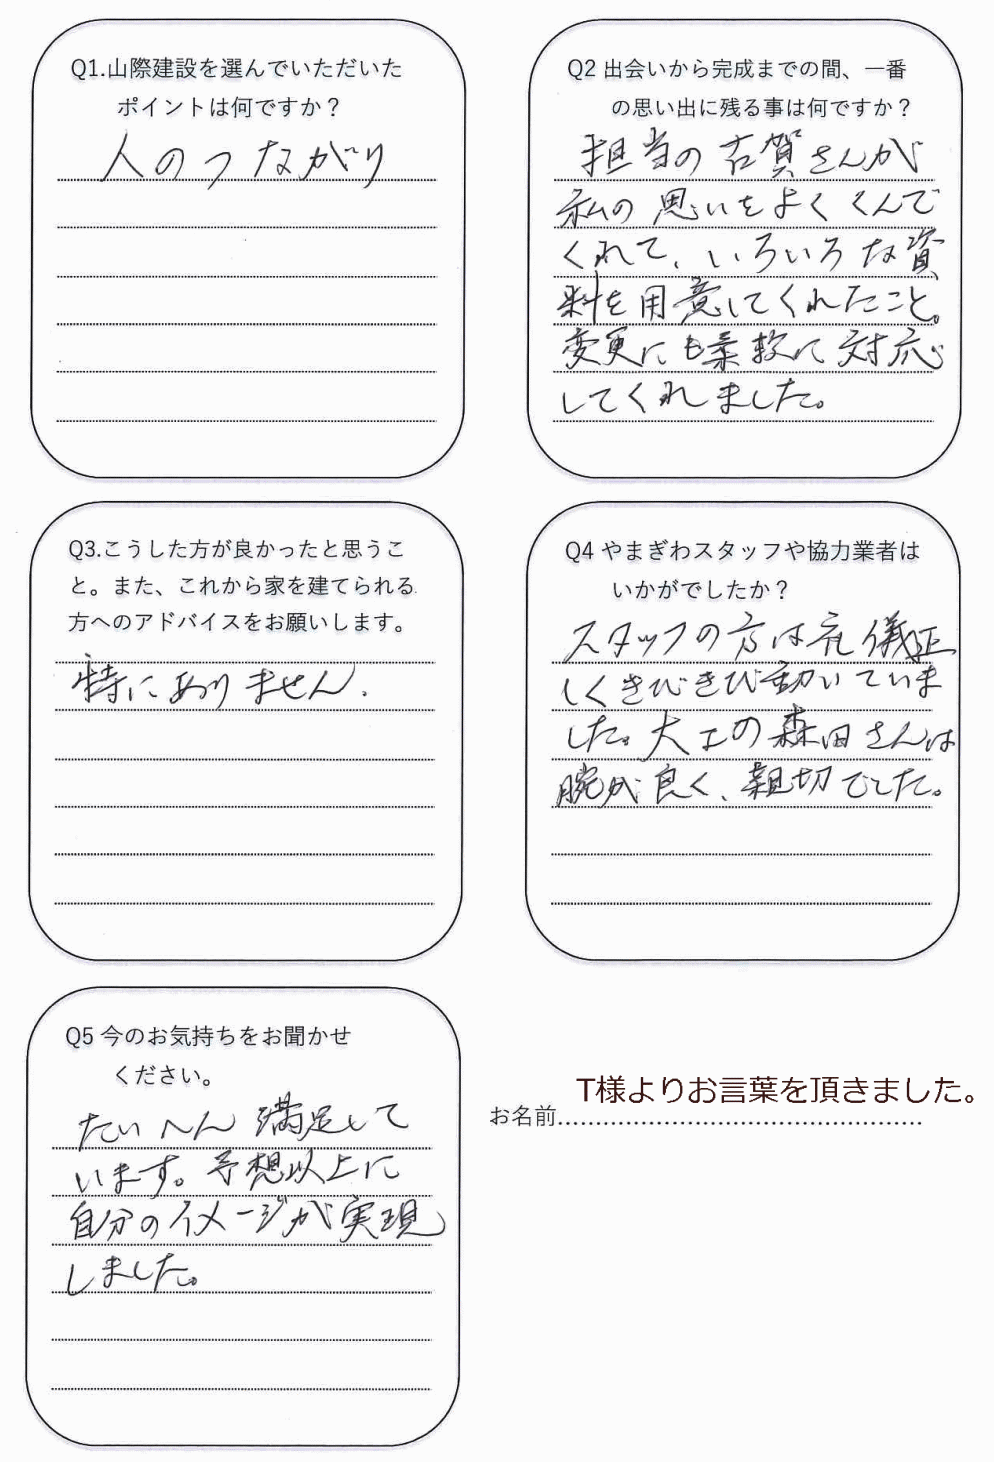 Q1.山際建設を選んでいただいた
ポイントは何ですか？
人のつながり
Q2 出会いから完成までの間、一番
の思い出に残る事は何ですか？
担当の古賀さんが
私の思いをよくくんで
くれて、いろいろな資
料を用意してくれたこと。
変更にも柔軟に対応
してくれました。
Q3.こうした方が良かったと思うこ
と。また、これから家を建てられる
方へのアドバイスをお願いします。
特にありません.
Q4 やまぎわスタッフや協力業者は
いかがでしたか？
スタッフの方は礼儀正
しくきびきび動いていま
した。大工の森田さんは
腕が良く、親切でした。
Q5 今のお気持ちをお聞かせ
ください。
たいへん満足して
います。予想以上に
自分のイメージが実現
しました。
T様よりお言葉を頂きました。
お名前